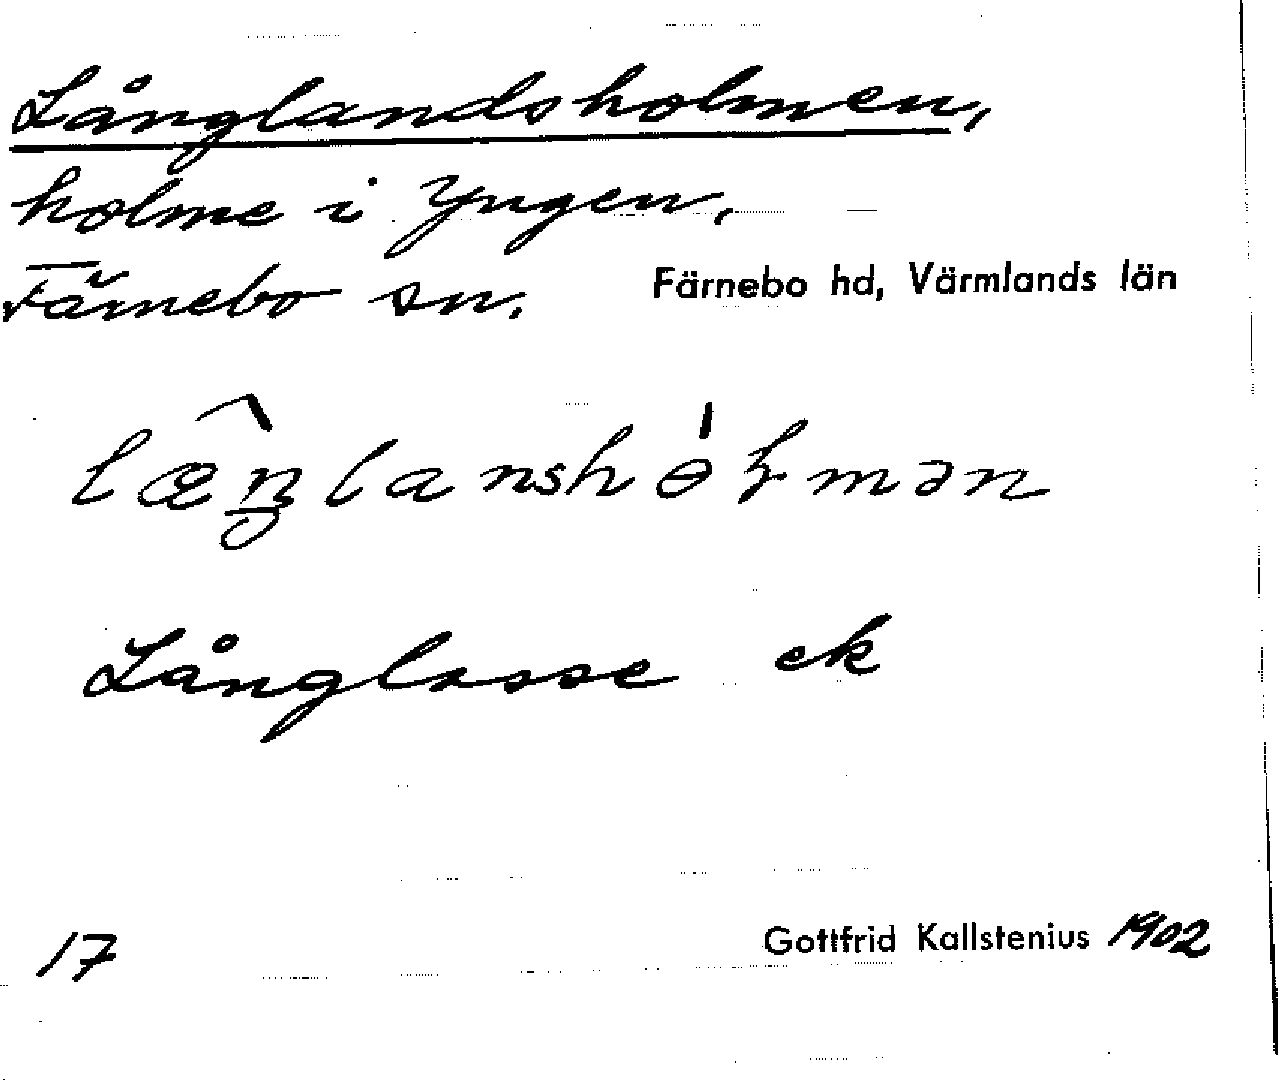 Långlandsholmen,
holme i Yngen,
Färnebo sn. Färnebo hd, Värmlands län
læŋlanshɵ̀ɫmən
Långlasse ek
17 Gottfrid Kallstenius 1902